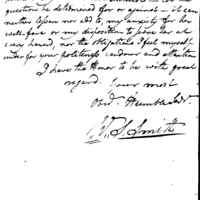 question be determined for or against - it can
neither lessen nor add to, my anxiety for her
wellfare or my disposition to serve her at
every hazard, nor the obligations I feel myself
under for your politeness, candour and attention
I have the Honor to be with great
regard. Your most
Obdt. Humble Servt.
W. S. Smith